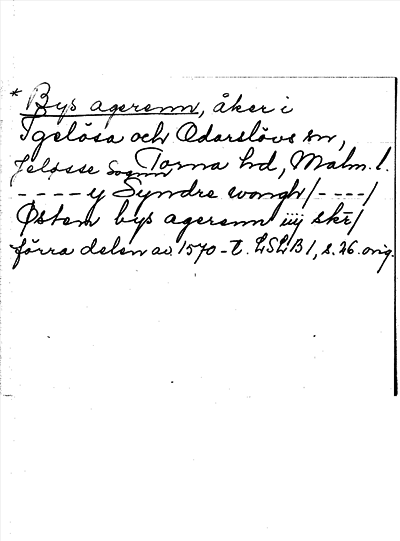 * Bys agerenn, åker i
Igelösa och Odarslövs sn,
Jeløsse Sognn Torna hd, Malm. l.
---- y Syndre wongh/----/
Østen bys agerenn iiij skr/
förra delen av 1570-t. LSLB 1, s. 26. orig.